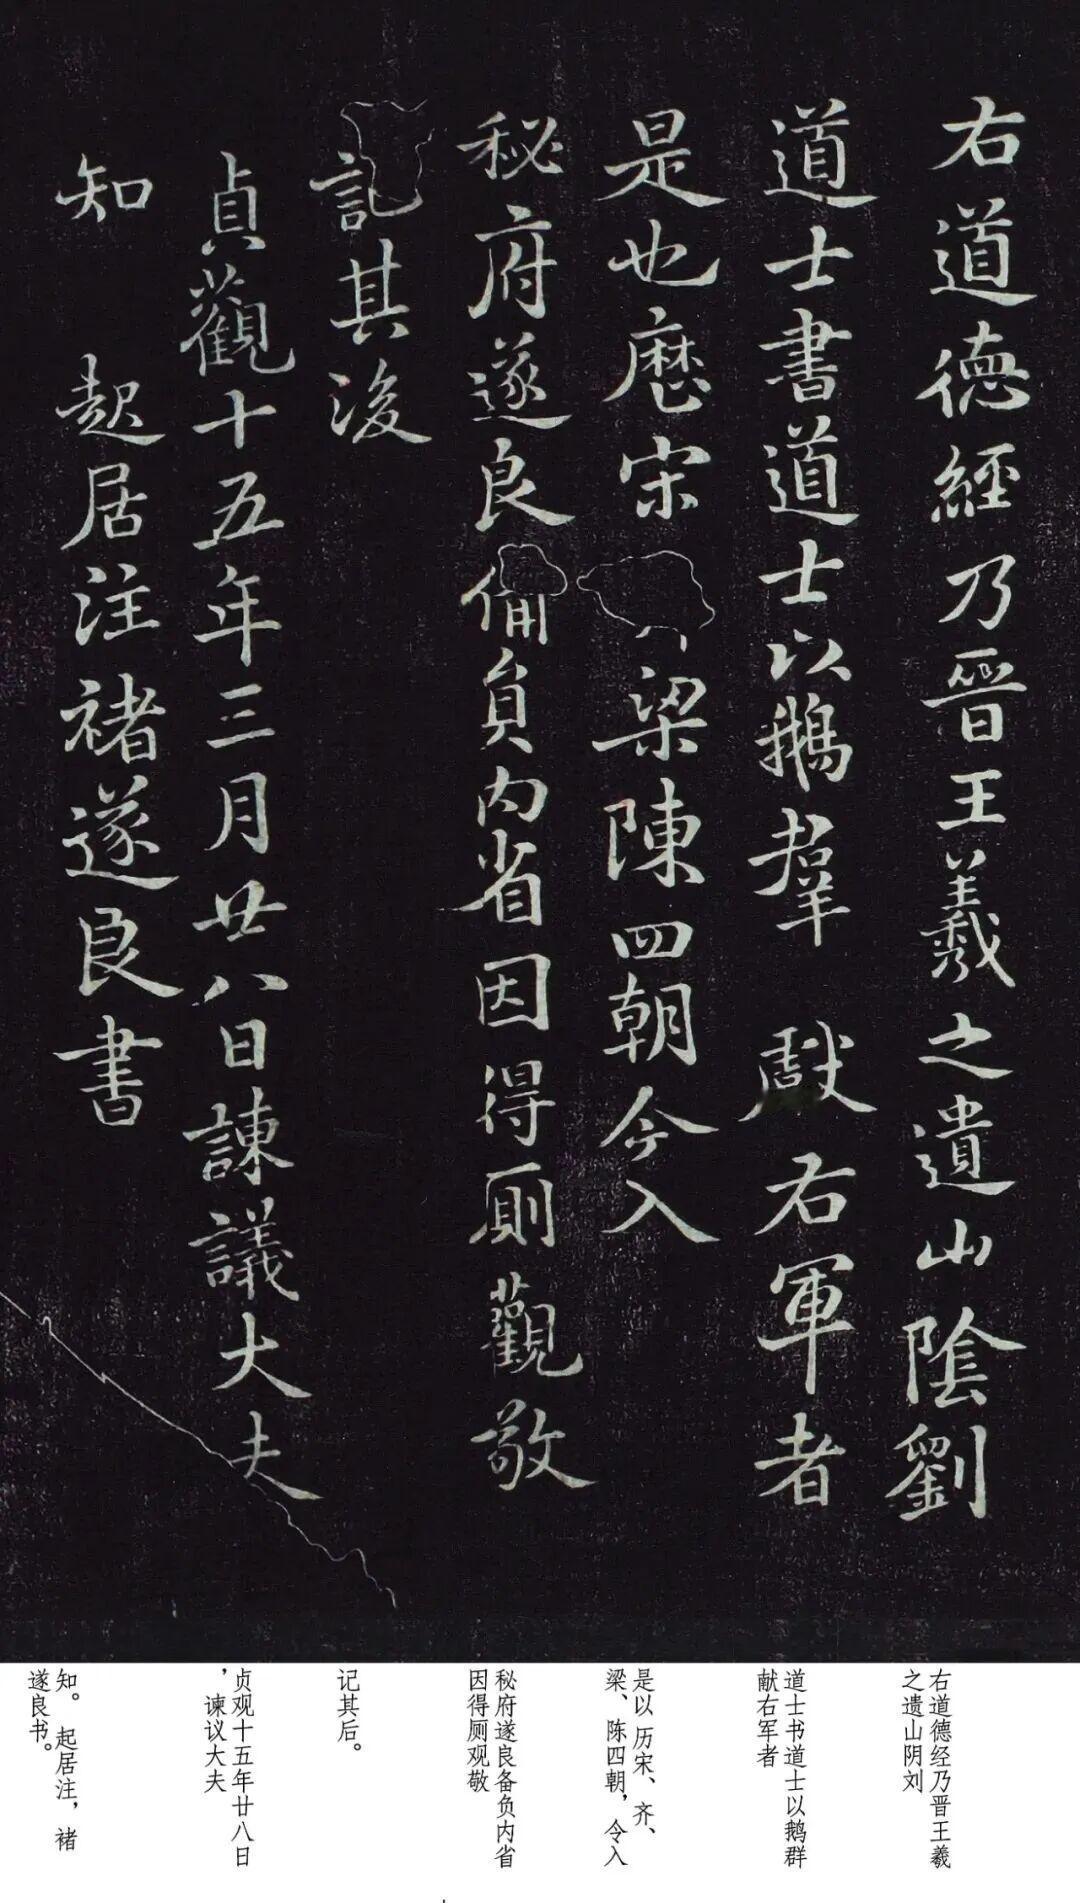 右道德經乃晉王羲之遺山陰劉
道士書道士以鵝群獻右軍者
是也歷宋梁陳四朝今入
秘府遂良備員内省因得厠觀敬
記其後
貞觀十五年三月廿八日諫議大夫
知起居注褚遂良書
右道德经乃晋王羲
之遗山阴刘
道士书道士以鹅群
献右军者
是以历宋、齐、
梁、陈四朝，令入
秘府遂良备负内省
因得厕观敬
记其后。
贞观十五年廿八日
，谏议大夫
知。起居注，褚
遂良书。